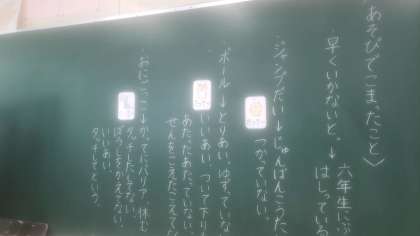 あそびでこまったこと〉
・早くいかないと。→六年生にぶ
はしっている
・ジャンプだい→じゅんばんこうた
つかっていない。
・ボール→とりあい。ゆずっていな
いいあい ついア下り
あたったあたっていない。
せんをこえたこえてな
・おにごっこ→かってにバリア、休む
タッチしたしてない。
ぼうしをかえてない。
いいあい。
タッチしてという。